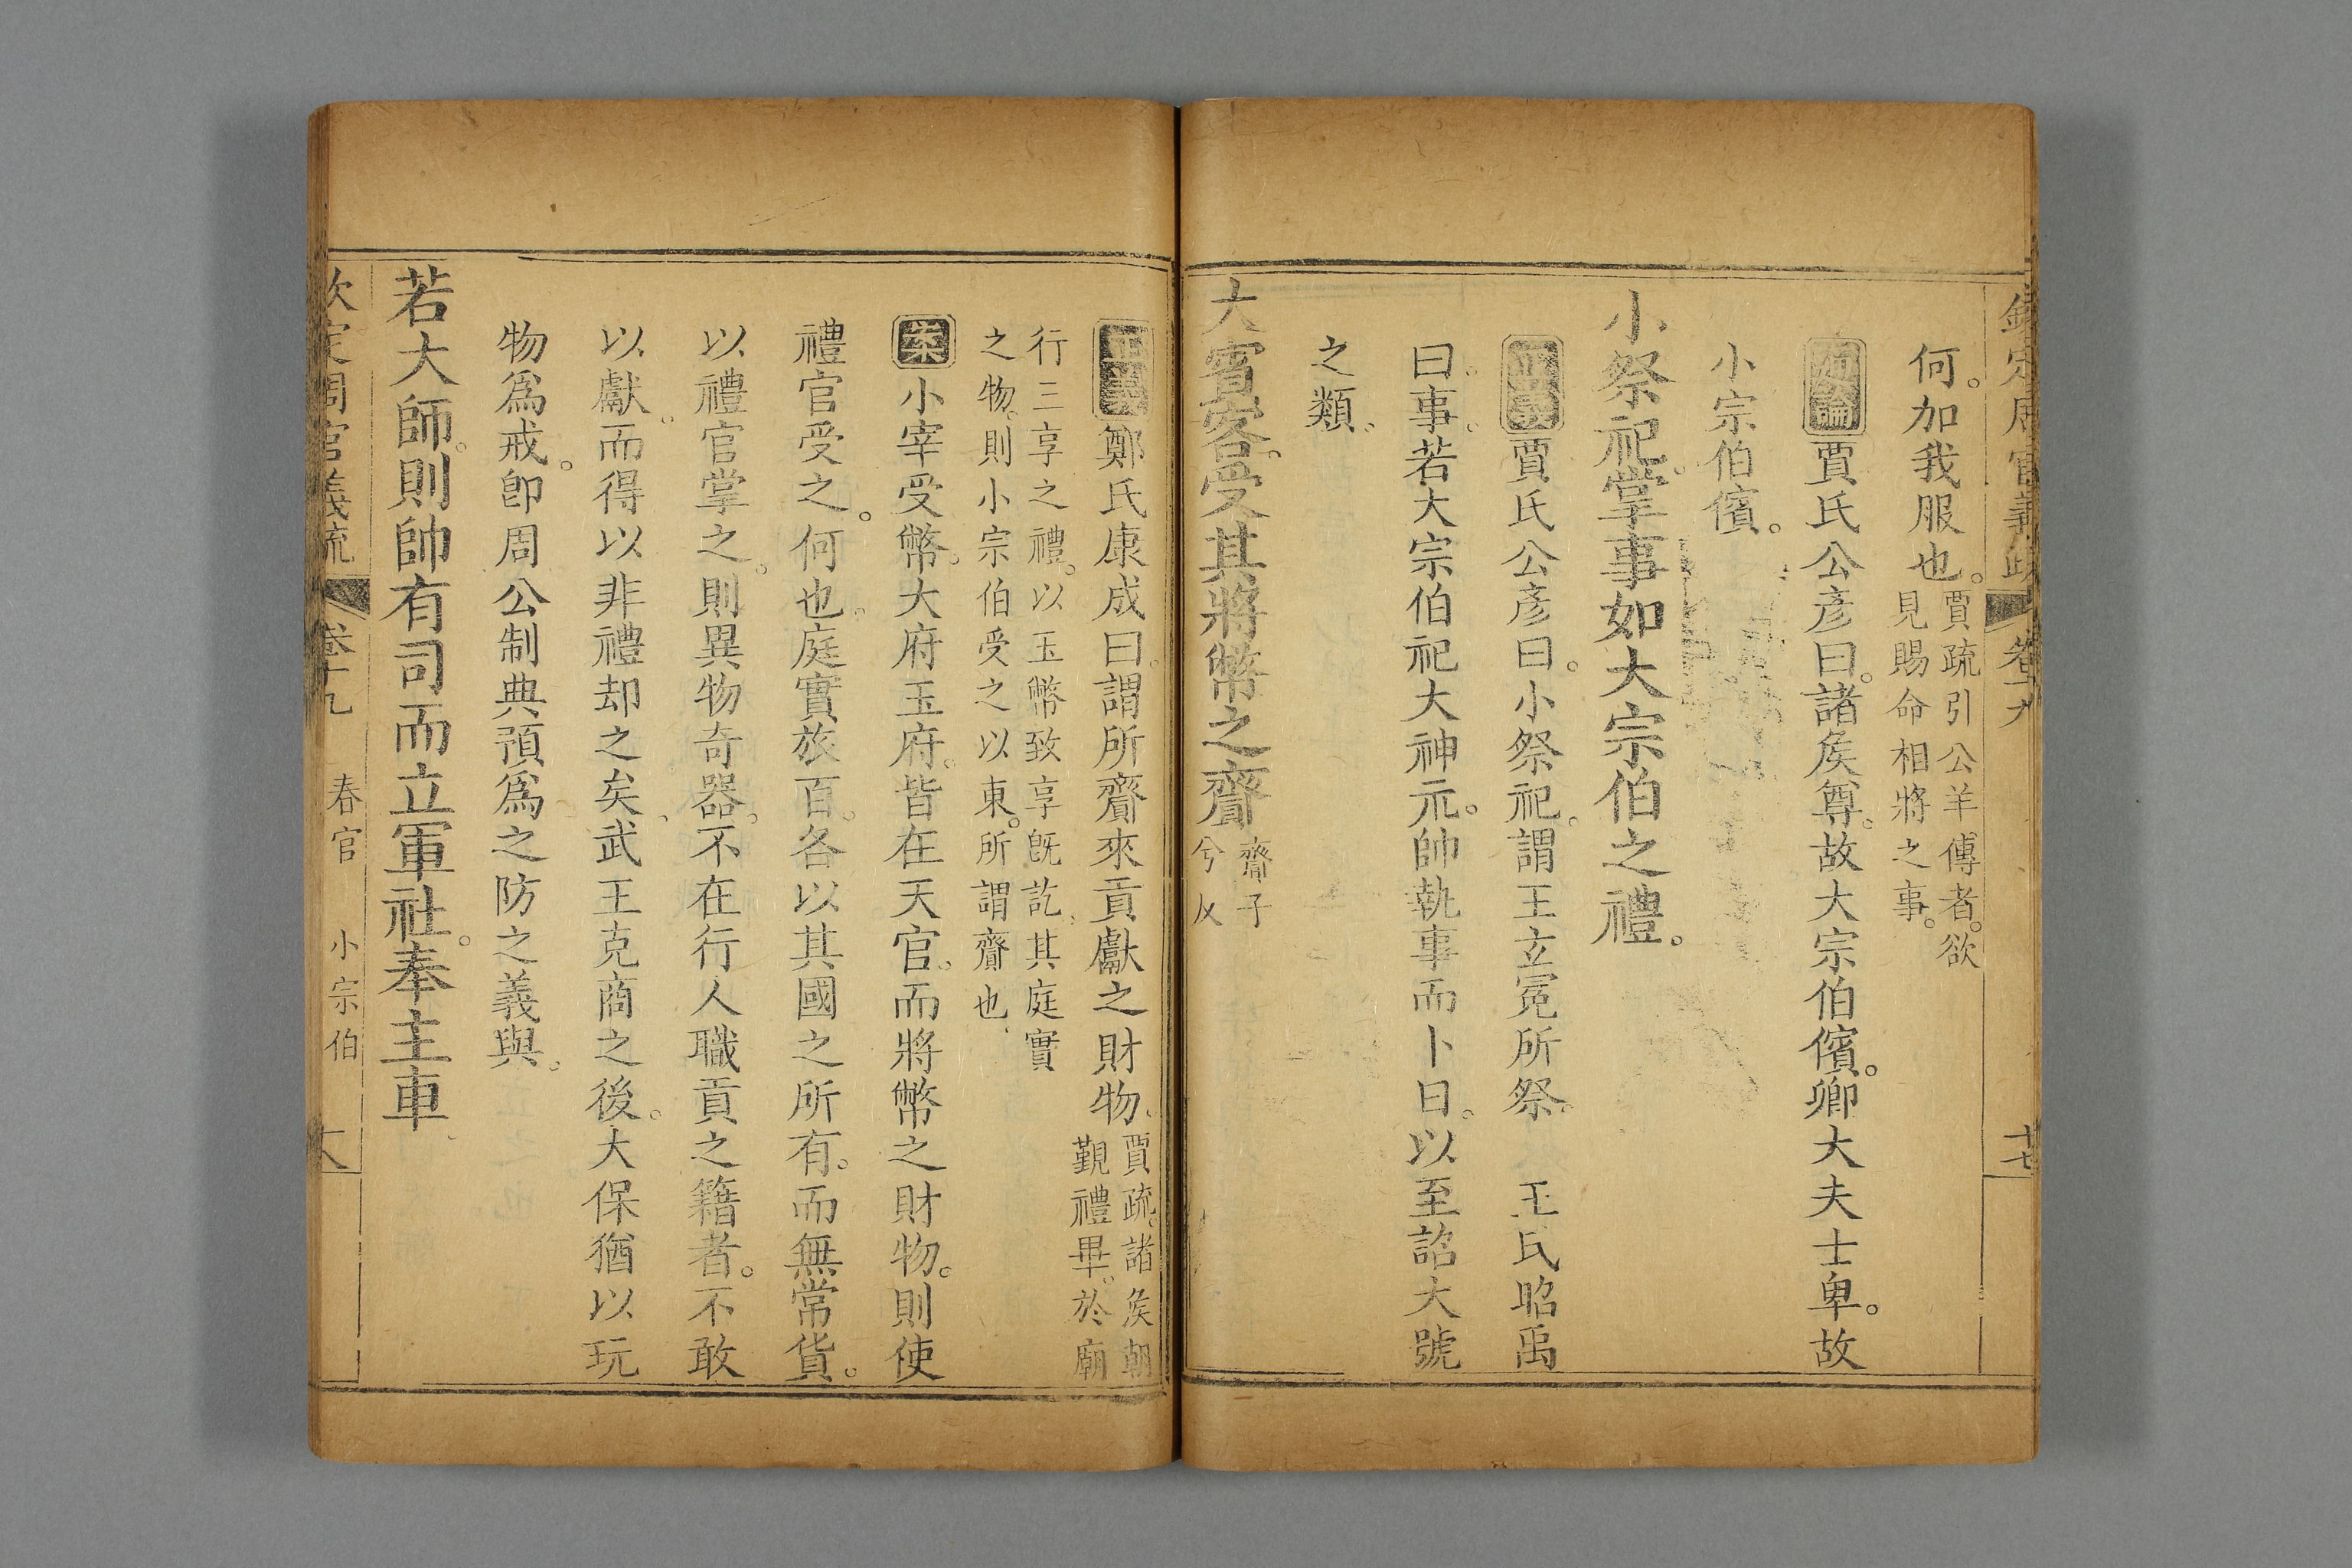 欽定周官義疏 卷十九 十七
何。加我服也。賈疏引公羊傳者。欲
見賜命相將之事。
通論賈氏公彥曰。諸矦尊。故大宗伯儐。卿大夫士卑。故
小宗伯儐。
小祭祀。掌事如大宗伯之禮。
正義賈氏公彥曰。小祭祀。謂王玄冕所祭。 王氏昭禹
曰。事。若大宗伯祀大神示。帥執事而卜日。以至詔大號
之類。
大賓客。受其將幣之齎 齎子
兮反
正義鄭氏康成曰。謂所齎來貢獻之財物。賈疏。諸矦朝
覲禮畢。於廟
行三享之禮。以玉幣致享旣訖。其庭實
之物。則小宗伯受之以東。所謂齎也。
案小宰受幣。大府玉府。皆在天官。而將幣之財物。則使
禮官受之。何也。庭實旅百。各以其國之所有。而無常貨。
以禮官掌之。則異物奇器。不在行人職貢之籍者。不敢
以獻。而得以非禮却之矣。武王克商之後。大保猶以玩
物爲戒。卽周公制典預爲之防之義與。
若大師。則帥有司而立軍社。奉主車。
欽定周官義疏 卷十九 春官 小宗伯